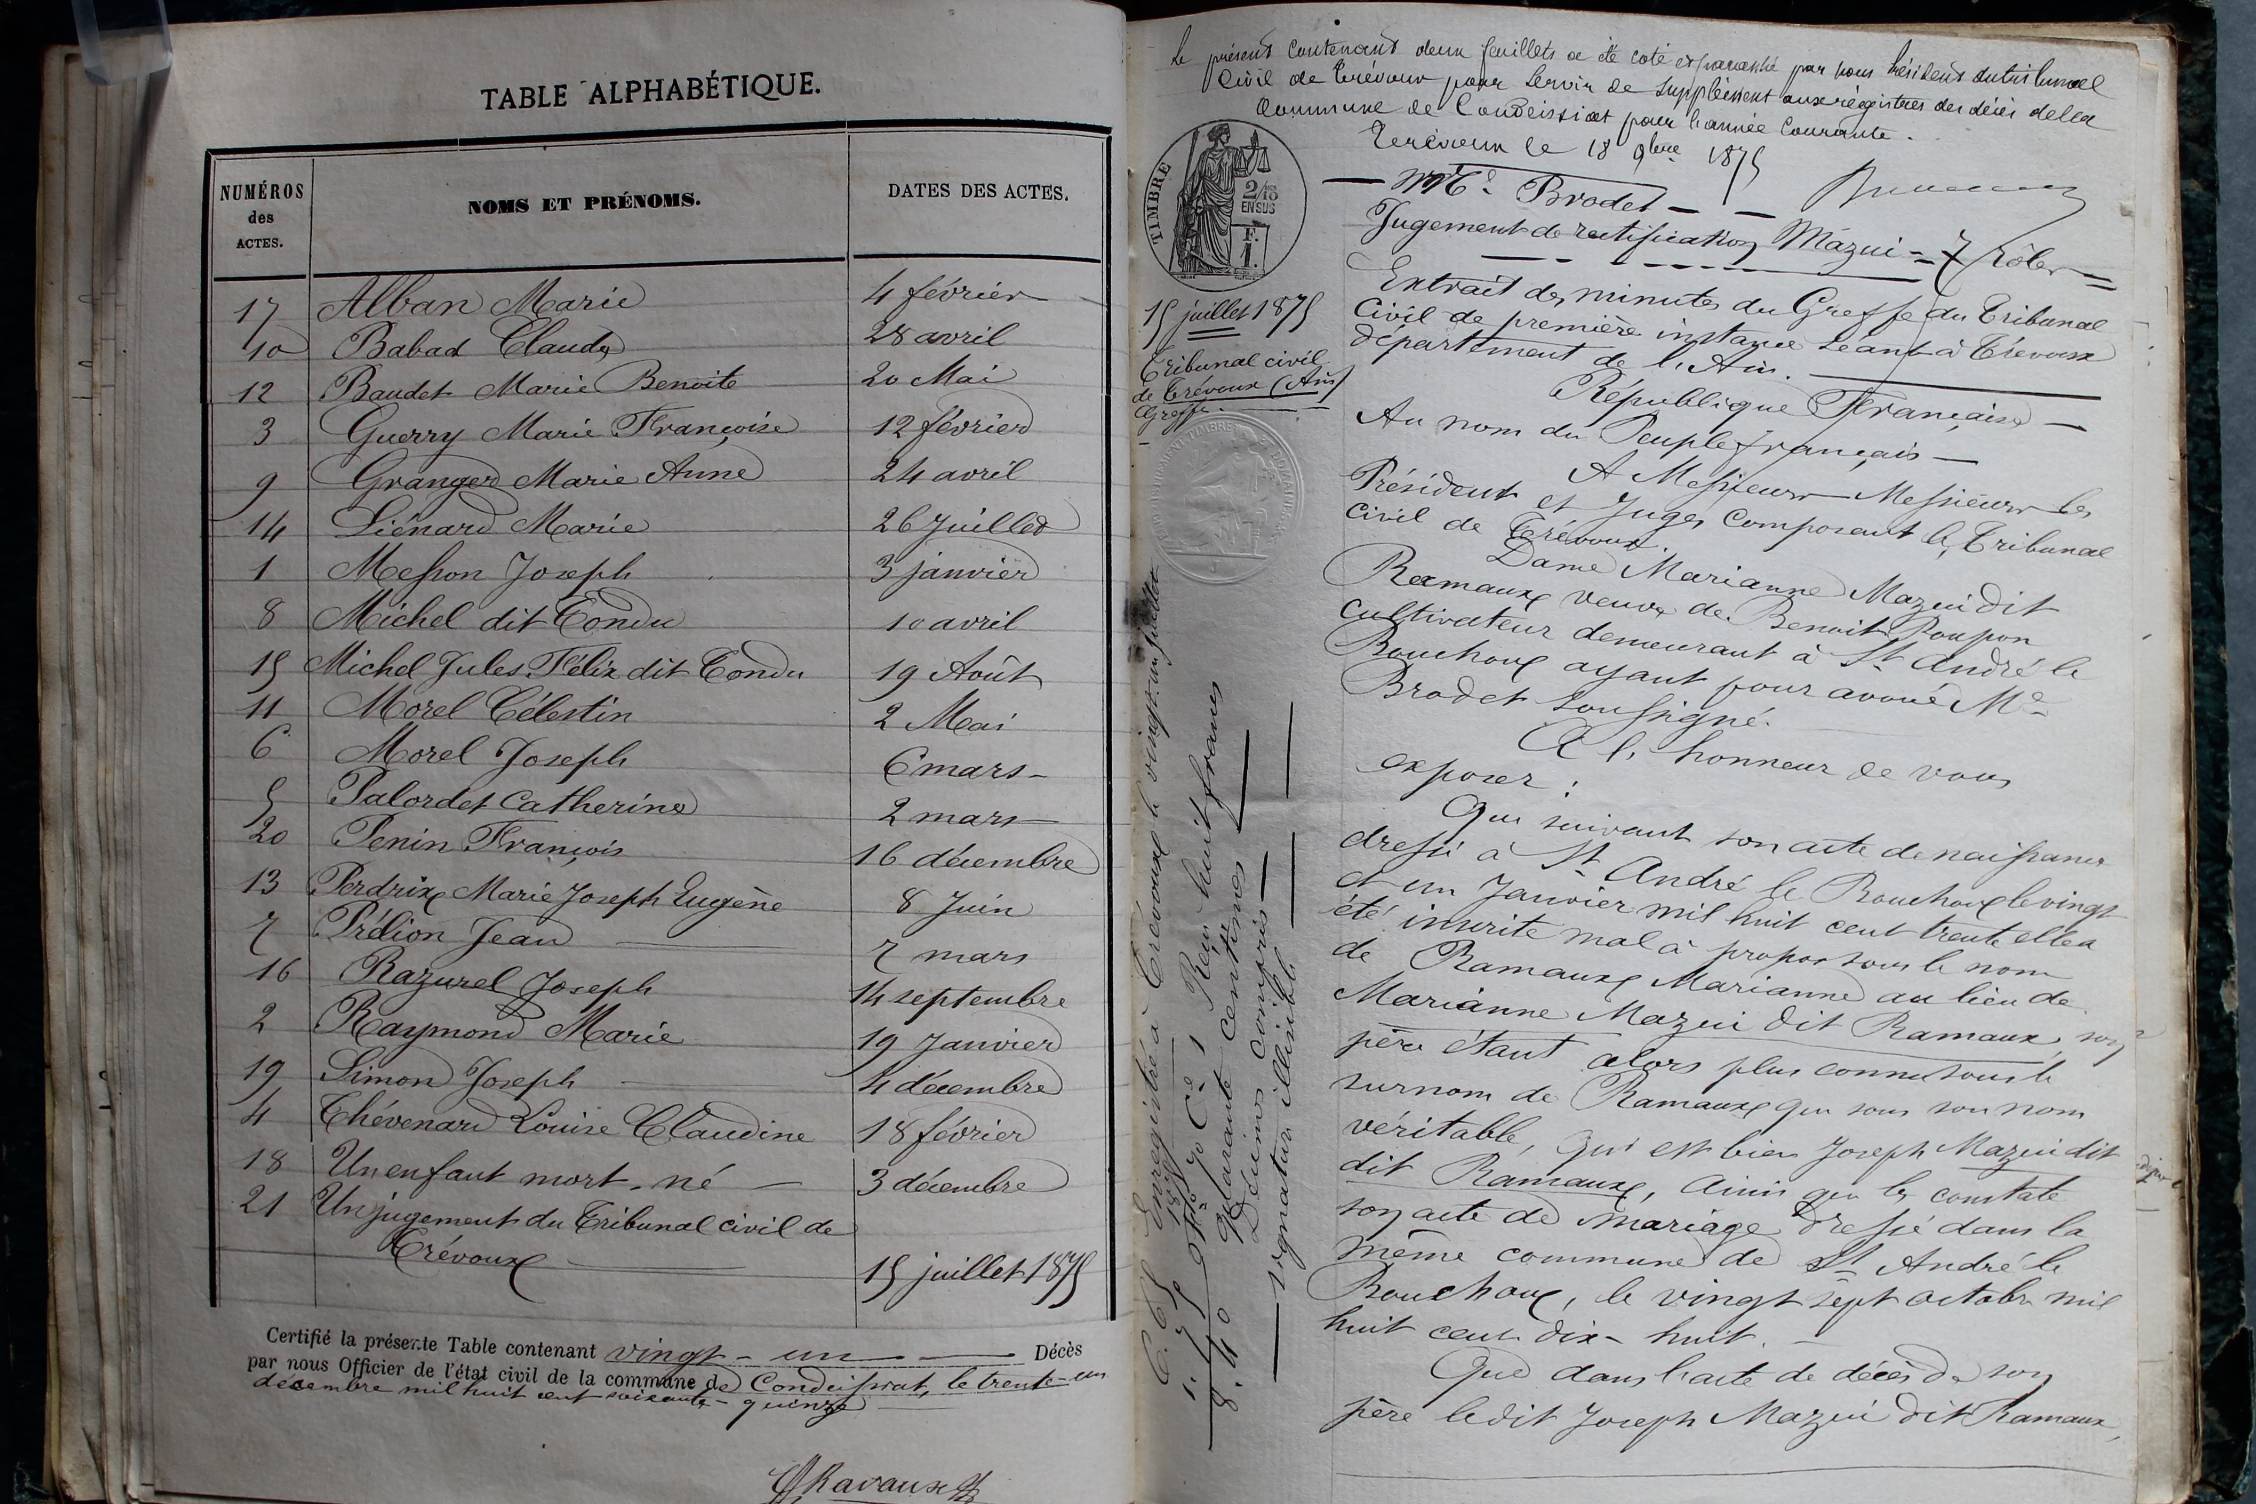 TABLE ALPHABÉTIQUE.
NUMÉROS des ACTES. NOMS ET PRÉNOMS. DATES DES ACTES.
17 Alban Marie 4 février
10 Babad Claude 28 avril
12 Baudet Marie Benoite 20 Mai
3 Guerry Marie Françoise 12 février
9 Granger Marie Anne 24 avril
14 Liénard Marie 26 Juillet
1 Messon Joseph 3 janvier
8 Michel dit Tondu 10 avril
15 Michel Jules Félix dit Tondu 19 Août
11 Morel Célestin 2 Mai
6 Morel Joseph 6 mars
5 Palordet Catherine 2 mars
20 Penin François 16 décembre
13 Perdrix Marie Joseph Eugène 8 Juin
7 Prélion Jean 7 mars
16 Razurel Joseph 14 septembre
2 Raymond Marie 19 Janvier
19 Simon Joseph 4 décembre
4 Thévenard Louise Claudine 18 février
18 Un enfant mort-né 3 décembre
21 Un jugement du Tribunal civil de
Trévoux 15 juillet 1875
Certifié la présente Table contenant vingt-un Décès
par nous Officier de l'état civil de la commune de Condeissiat, le trente-un
décembre mil huit cent soixante-quinze
Ravaux
Le présent contenant deux feuillets a été coté et paraphé par nous Président du tribunal
Civil de Trévoux pour servir de supplément aux régistres des décès de la
Commune de Condeissiat pour l'année Courante.
Trévoux le 18 9bre 1875
Me Brodet
Jugement de rectification Mazui = 7 Rôles =
TIMBRE
2/10 EN SUS
F. 1.
15 juillet 1875
Tribunal civil
de Trévoux (Ain)
Greffe
Extrait des minutes du Greffe du Tribunal
Civil de première instance séant à Trévoux
département de l'Ain.
République Française
Au nom du Peuple français
A Messieurs Messieurs les
Président et Juges composant le Tribunal
Civil de Trévoux.
Dame Marianne Mazui dit
Ramaux veuve de Benoit Poupon
cultivateur demeurant à St André le
Bouchoux ayant pour avoué Me
Brodet soussigné.
A l'honneur de vous
exposer :
Que suivant son acte de naissance
dressé à St André le Bouchoux le vingt
et un Janvier mil huit cent trente elle a
été inscrite mal à propos sous le nom
de Ramaux Marianne au lieu de
Marianne Mazui dit Ramaux, son
père étant alors plus connu sous le
surnom de Ramaux que sous son nom
véritable, qui est bien Joseph Mazui dit
dit Ramaux, ainsi que le constate
son acte de mariage dressé dans la
même commune de St André le
Bouchoux, le vingt sept octobre mil
huit cent dix-huit.
Que dans l'acte de décès de son
père ledit Joseph Mazui dit Ramaux,
Enregistré à Trévoux le vingt-un juillet
1875 Fo 70 Ce 1 Reçu huit francs
quarante centimes
Décimes compris
signature illisible
8.40